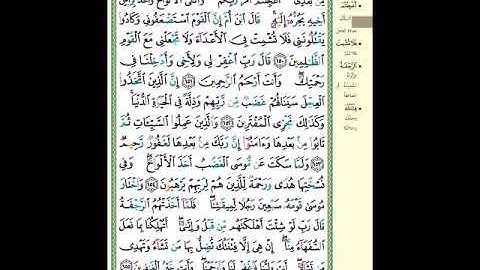 مِنۢ بَعْدِىٓ أَعَجِلْتُمْ أَمْرَ رَبِّكُمْ وَأَلْقَى ٱلْأَلْوَاحَ وَأَخَذَ بِرَأْسِ
أَخِيهِ يَجُرُّهُۥٓ إِلَيْهِ قَالَ ٱبْنَ أُمَّ إِنَّ ٱلْقَوْمَ ٱسْتَضْعَفُونِى وَكَادُوا۟
يَقْتُلُونَنِى فَلَا تُشْمِتْ بِىَ ٱلْأَعْدَآءَ وَلَا تَجْعَلْنِى مَعَ ٱلْقَوْمِ
ٱلظَّٰلِمِينَ ١٥٠ قَالَ رَبِّ ٱغْفِرْ لِى وَلِأَخِى وَأَدْخِلْنَا فِى
رَحْمَتِكَ وَأَنتَ أَرْحَمُ ٱلرَّٰحِمِينَ ١٥١ إِنَّ ٱلَّذِينَ ٱتَّخَذُوا۟
ٱلْعِجْلَ سَيَنَالُهُمْ غَضَبٌ مِّن رَّبِّهِمْ وَذِلَّةٌ فِى ٱلْحَيَوٰةِ ٱلدُّنْيَا
وَكَذَٰلِكَ نَجْزِى ٱلْمُفْتَرِينَ ١٥٢ وَٱلَّذِينَ عَمِلُوا۟ ٱلسَّيِّـَٔاتِ ثُمَّ
تَابُوا۟ مِنۢ بَعْدِهَا وَءَامَنُوٓا۟ إِنَّ رَبَّكَ مِنۢ بَعْدِهَا لَغَفُورٌ رَّحِيمٌ
١٥٣ وَلَمَّا سَكَتَ عَن مُّوسَى ٱلْغَضَبُ أَخَذَ ٱلْأَلْوَاحَ وَفِى
نُسْخَتِهَا هُدًى وَرَحْمَةٌ لِّلَّذِينَ هُمْ لِرَبِّهِمْ يَرْهَبُونَ ١٥٤ وَٱخْتَارَ
مُوسَىٰ قَوْمَهُۥ سَبْعِينَ رَجُلًا لِّمِيقَٰتِنَا فَلَمَّآ أَخَذَتْهُمُ ٱلرَّجْفَةُ
قَالَ رَبِّ لَوْ شِئْتَ أَهْلَكْتَهُم مِّن قَبْلُ وَإِيَّٰىَ أَتُهْلِكُنَا بِمَا فَعَلَ
ٱلسُّفَهَآءُ مِنَّآ إِنْ هِىَ إِلَّا فِتْنَتُكَ تُضِلُّ بِهَا مَن تَشَآءُ وَتَهْدِى
مَن تَشَآءُ أَنتَ وَلِيُّنَا فَٱغْفِرْ لَنَا وَٱرْحَمْنَا وَأَنتَ خَيْرُ ٱلْغَٰفِرِينَ ١٥٥